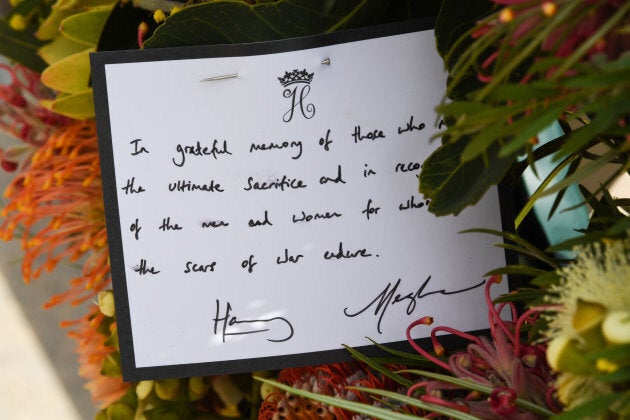 H
In grateful memory of those who
the ultimate sacrifice and in
of the men and women for
the scars of war endure.
Harry Meghan